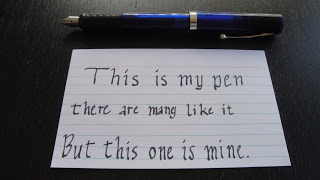 This is my pen
there are mang like it
But this one is mine.